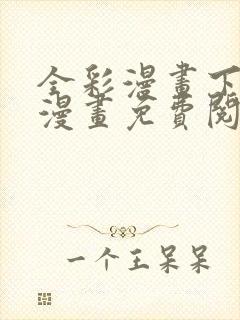 全彩漫畫下
漫畫免費閱
一个王呆呆